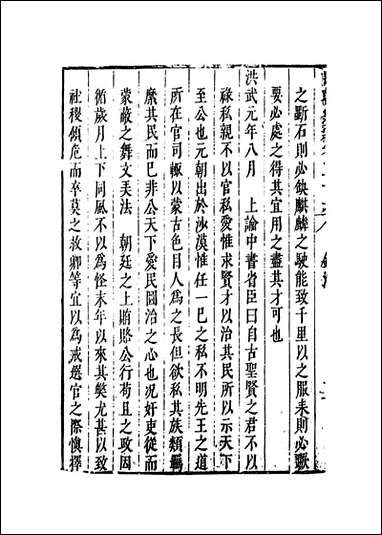 之斷石則必缺麒麟之駛能致千里以之服耒則必蹶
要必處之得其宜用之盡其才可也
洪武元年八月 上諭中書省臣曰自古聖賢之君不以
祿私親不以官私愛惟求賢才以治其民所以示天下
至公也元朝出於沙漠惟任一巳之私不明先王之道
所在官司輙以蒙古色目人為之長但欲私其族類羈
縻其民而巳非公天下愛民圖治之心也况奸吏從而
蒙蔽之舞文美法 朝廷之上賄賂公行苟且之政因
循歲月上下同風不以為怪末年以來其弊尤甚以致
社稷傾危而卒莫之救卿等宜以為戒選官之際慎擇